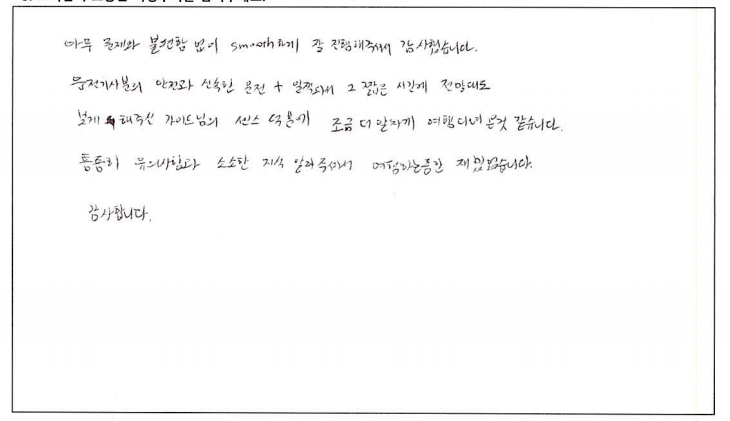 아무 문제와 불편함 없이 smooth하게 잘 진행해주셔서 감사했습니다.
운전기사분의 안전과 신속한 운전 + 일찍와서 그 짧은 시간에 전망대도
보게 해주신 가이드님의 센스 덕분에 조금 더 알차게 여행다녀온것 같습니다.
틈틈히 유의사항과 소소한 지식 알려주셔서 여행하는동안 재밌었습니다.
감사합니다.